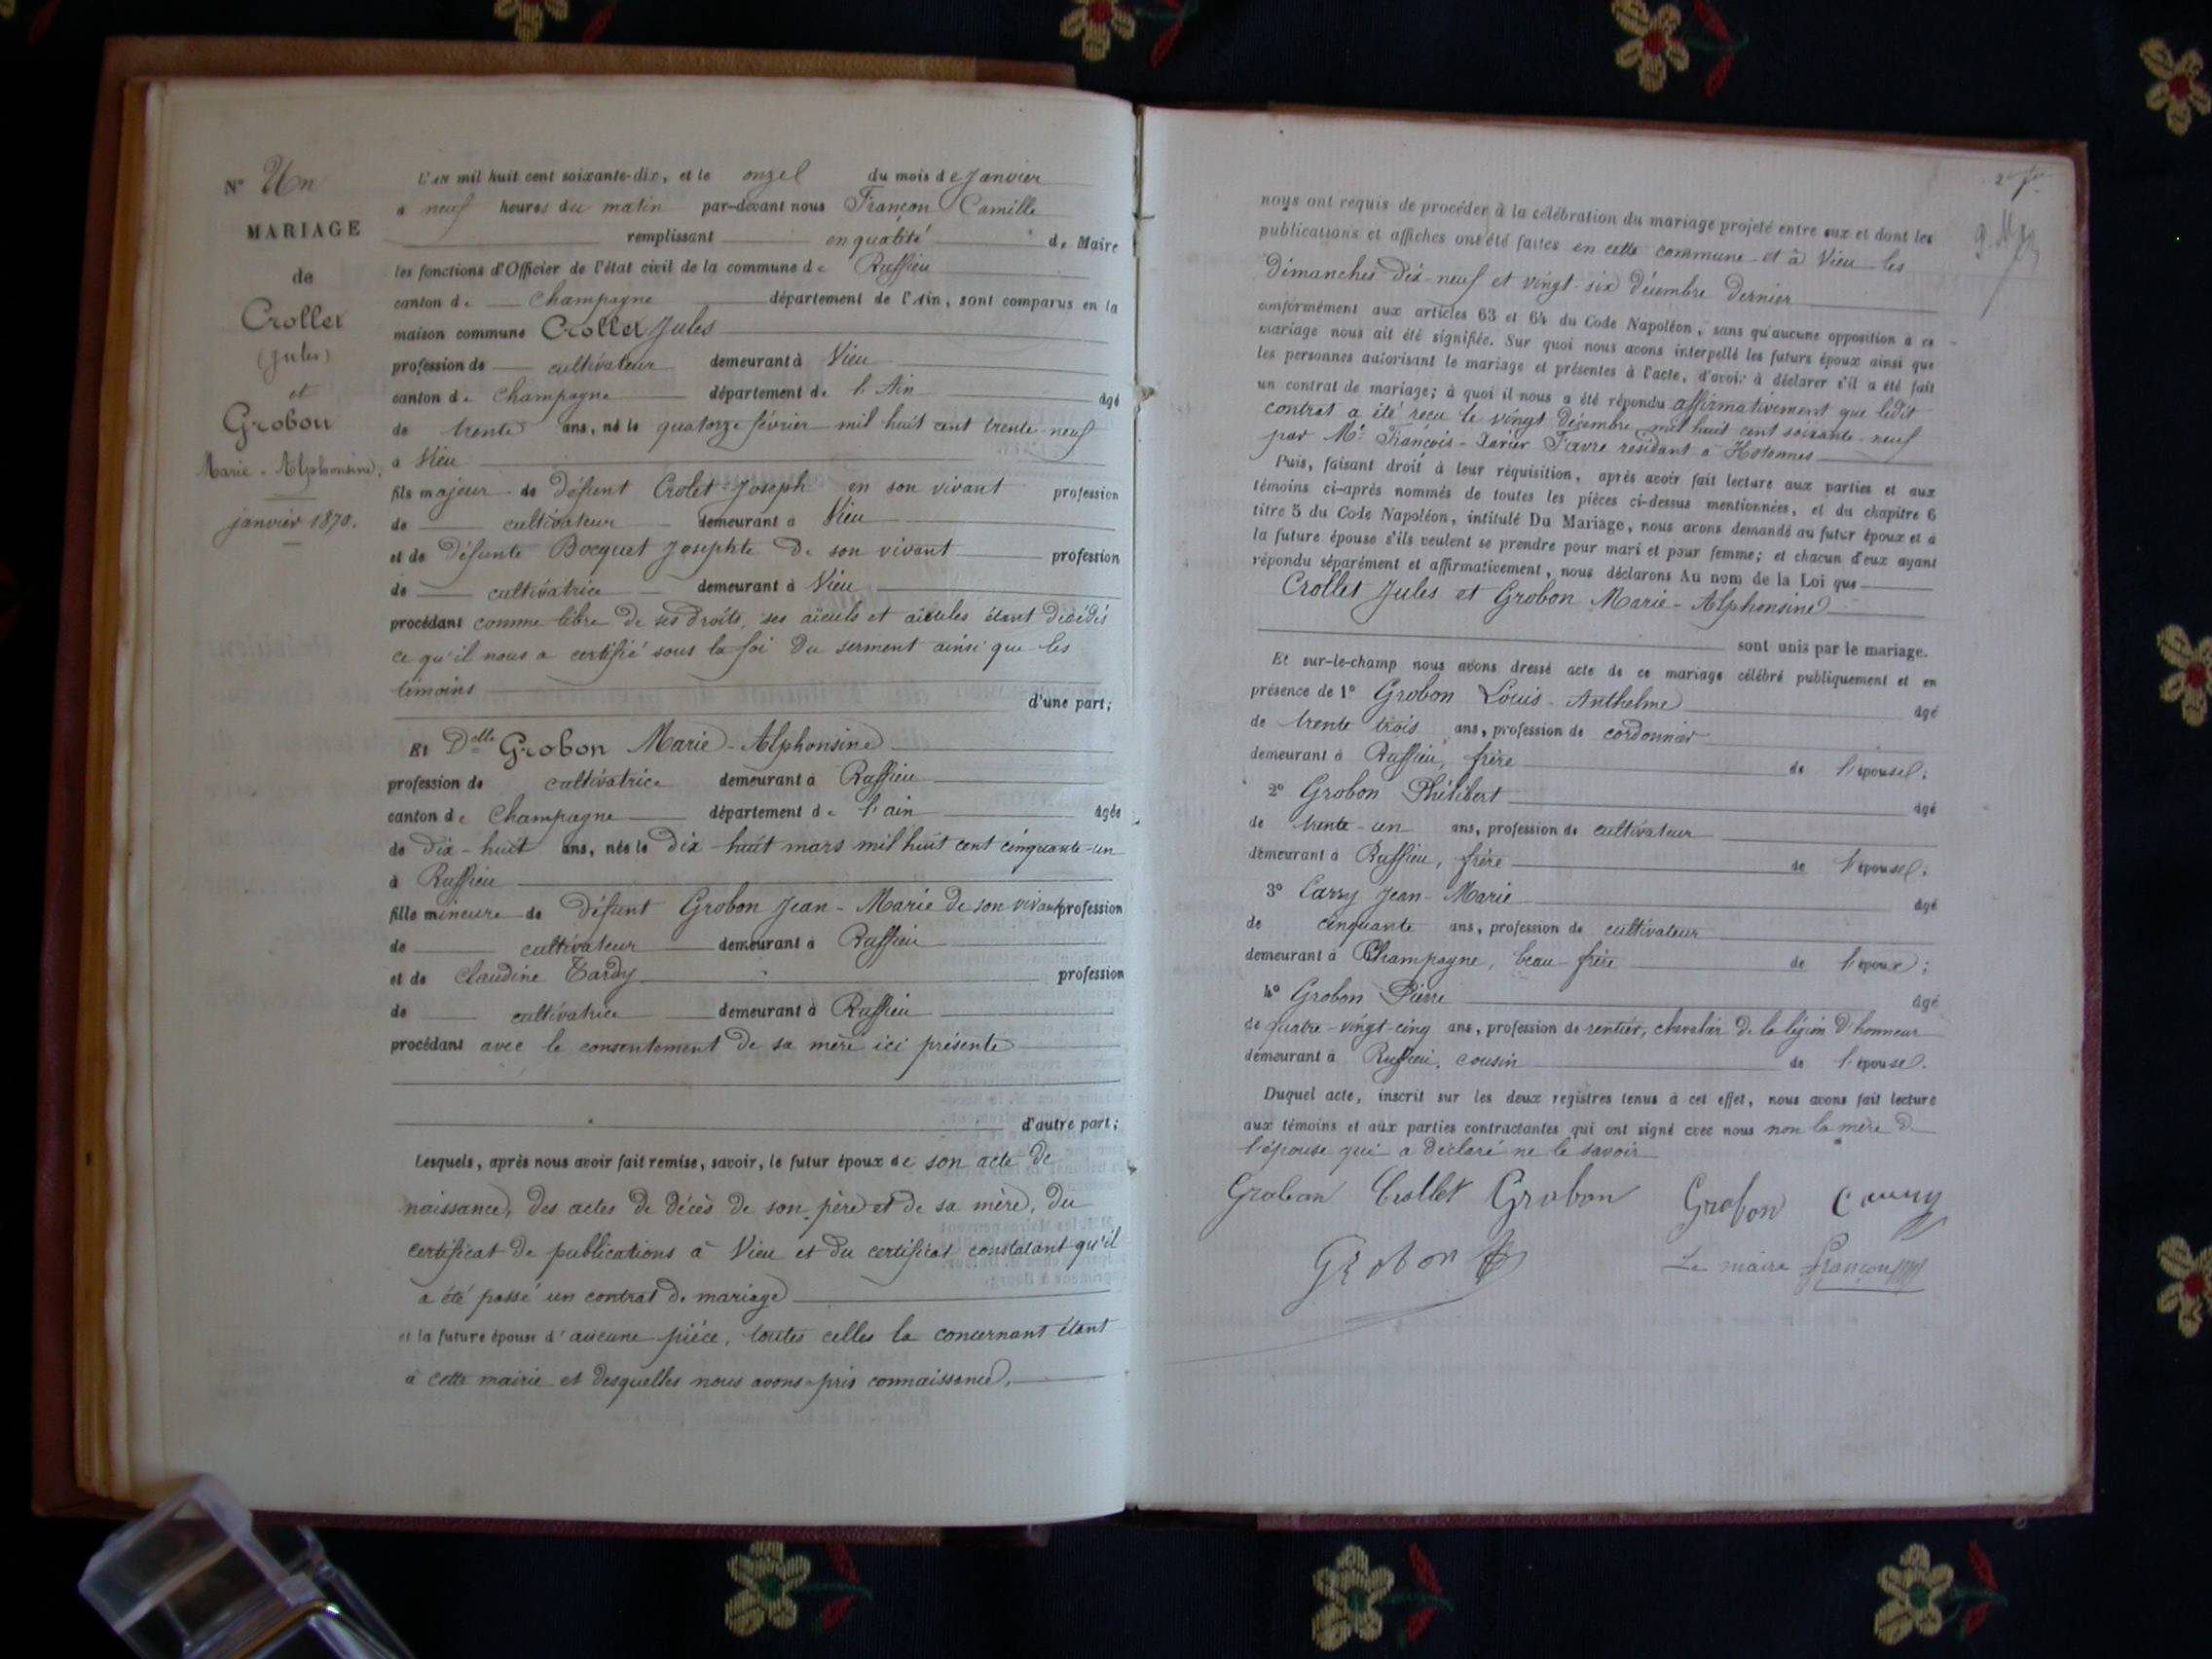 N° Un
MARIAGE
de
Crollet
(Jules)
et
Grobon
Marie-Alphonsine.
janvier 1870.
L'AN mil huit cent soixante-dix, et le onze du mois de Janvier
à neuf heures du matin par-devant nous Françon Camille
remplissant en qualité de Maire
les fonctions d'Officier de l'état civil de la commune de Ruffieu
canton de Champagne département de l'Ain, sont comparus en la
maison commune Crollet Jules
profession de cultivateur demeurant à Vieu
canton de Champagne département de l'Ain âgé
de trente ans, né le quatorze février mil huit cent trente-neuf
à Vieu
fils majeur de défunt Crolet Joseph en son vivant profession
de cultivateur demeurant à Vieu
et de défunte Bocquet Josephte de son vivant profession
de cultivatrice demeurant à Vieu
procédant comme libre de ses droits, ses aïeuls et aïeules étant décédés
ce qu'il nous a certifié sous la foi du serment ainsi que les
témoins
d'une part;
Et Delle Grobon Marie-Alphonsine
profession de cultivatrice demeurant à Ruffieu
canton de Champagne département de l'ain âgée
de dix-huit ans, née le dix-huit mars mil huit cent cinquante-un
à Ruffieu
fille mineure de défunt Grobon Jean-Marie de son vivant profession
de cultivateur demeurant à Ruffieu
et de Claudine Tardy profession
de cultivatrice demeurant à Ruffieu
procédant avec le consentement de sa mère ici présente
d'autre part;
Lesquels, après nous avoir fait remise, savoir, le futur époux de son acte de
naissance, des actes de décès de son père et de sa mère, du
certificat de publications à Vieu et du certificat constatant qu'il
a été passé un contrat de mariage
et la future épouse d'aucune pièce, toutes celles la concernant étant
à cette mairie et desquelles nous avons pris connaissance,
nous ont requis de procéder à la célébration du mariage projeté entre eux et dont les
publications et affiches ont été faites en cette commune et à Vieu les
Dimanches dix-neuf et vingt-six décembre dernier
conformément aux articles 63 et 64 du Code Napoléon, sans qu'aucune opposition à ce
mariage nous ait été signifiée. Sur quoi nous avons interpellé les futurs époux ainsi que
les personnes autorisant le mariage et présentes à l'acte, d'avoir à déclarer s'il a été fait
un contrat de mariage; à quoi il nous a été répondu affirmativement que ledit
contrat a été reçu le vingt décembre mil huit cent soixante-neuf
par Me François-Xavier Favre résidant à Hotonnes
Puis, faisant droit à leur réquisition, après avoir fait lecture aux parties et aux
témoins ci-après nommés de toutes les pièces ci-dessus mentionnées, et du chapitre 6
titre 5 du Code Napoléon, intitulé Du Mariage, nous avons demandé au futur époux et à
la future épouse s'ils veulent se prendre pour mari et pour femme; et chacun d'eux ayant
répondu séparément et affirmativement, nous déclarons Au nom de la Loi que
Crollet Jules et Grobon Marie-Alphonsine
sont unis par le mariage.
Et sur-le-champ nous avons dressé acte de ce mariage célébré publiquement et en
présence de 1° Grobon Louis-Anthelme âgé
de trente trois ans, profession de cordonnier
demeurant à Ruffieu, frère de l'épouse;
2° Grobon Philibert âgé
de trente-un ans, profession de cultivateur
demeurant à Ruffieu, frère de l'épouse;
3° Carry Jean-Marie âgé
de cinquante ans, profession de cultivateur
demeurant à Champagne, beau-frère de l'époux;
4° Grobon Pierre âgé
de quatre-vingt-cinq ans, profession de rentier, chevalier de la légion d'honneur
demeurant à Ruffieu, cousin de l'épouse.
Duquel acte, inscrit sur les deux registres tenus à cet effet, nous avons fait lecture
aux témoins et aux parties contractantes qui ont signé avec nous non la mère de
l'épouse qui a déclaré ne le savoir
Grobon Crollet Grobon Grobon Carry
Grobon Le maire Françon